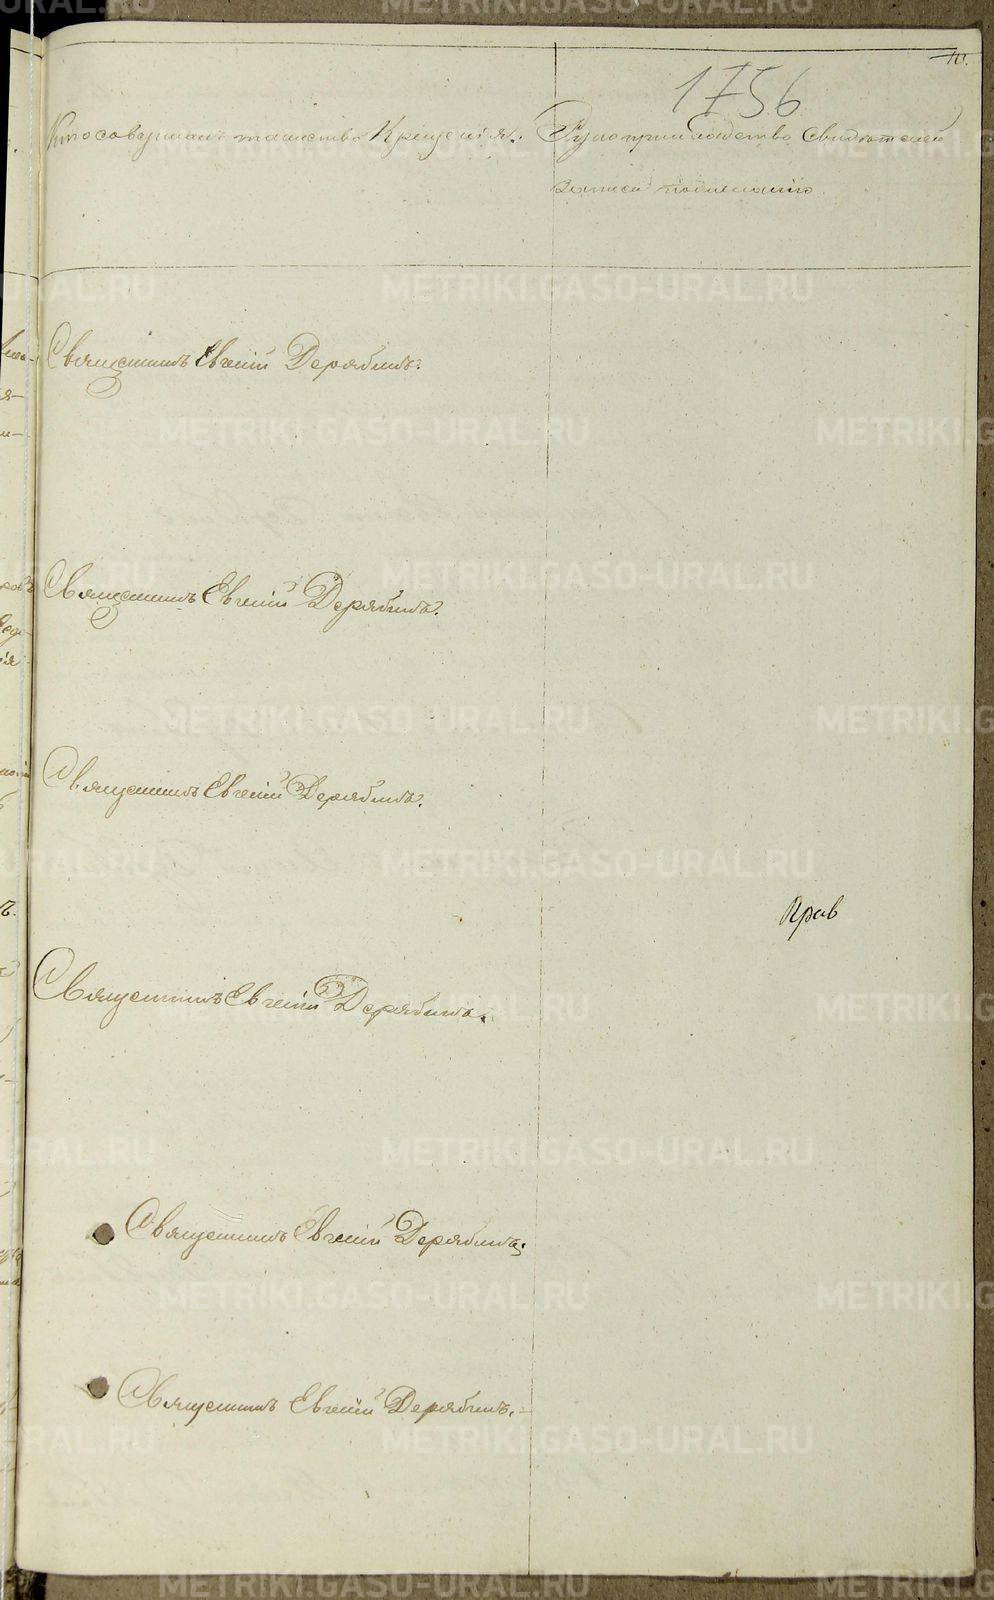 1756
Кто совершалъ таинство Крещенія. Рукоприкладство свидѣтелей
записи по желанію
Священникъ Евгеній Дерябинъ.
Священникъ Евгеній Дерябинъ.
Священникъ Евгеній Дерябинъ.
Прав
Священникъ Евгеній Дерябинъ.
Священникъ Евгеній Дерябинъ.
Священникъ Евгеній Дерябинъ.
METRIKI.GASO-URAL.RU